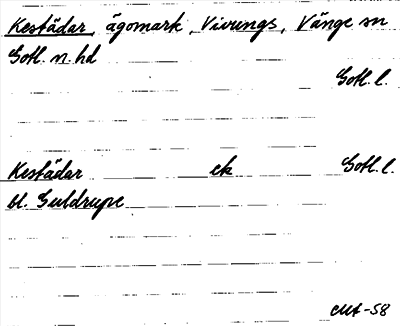 Kestädar, ägomark, Vivungs, Vänge sn
Gotl. n. hd
Gotl. l.
Kestädar ek Gotl. l.
bl. Guldrupe
-58